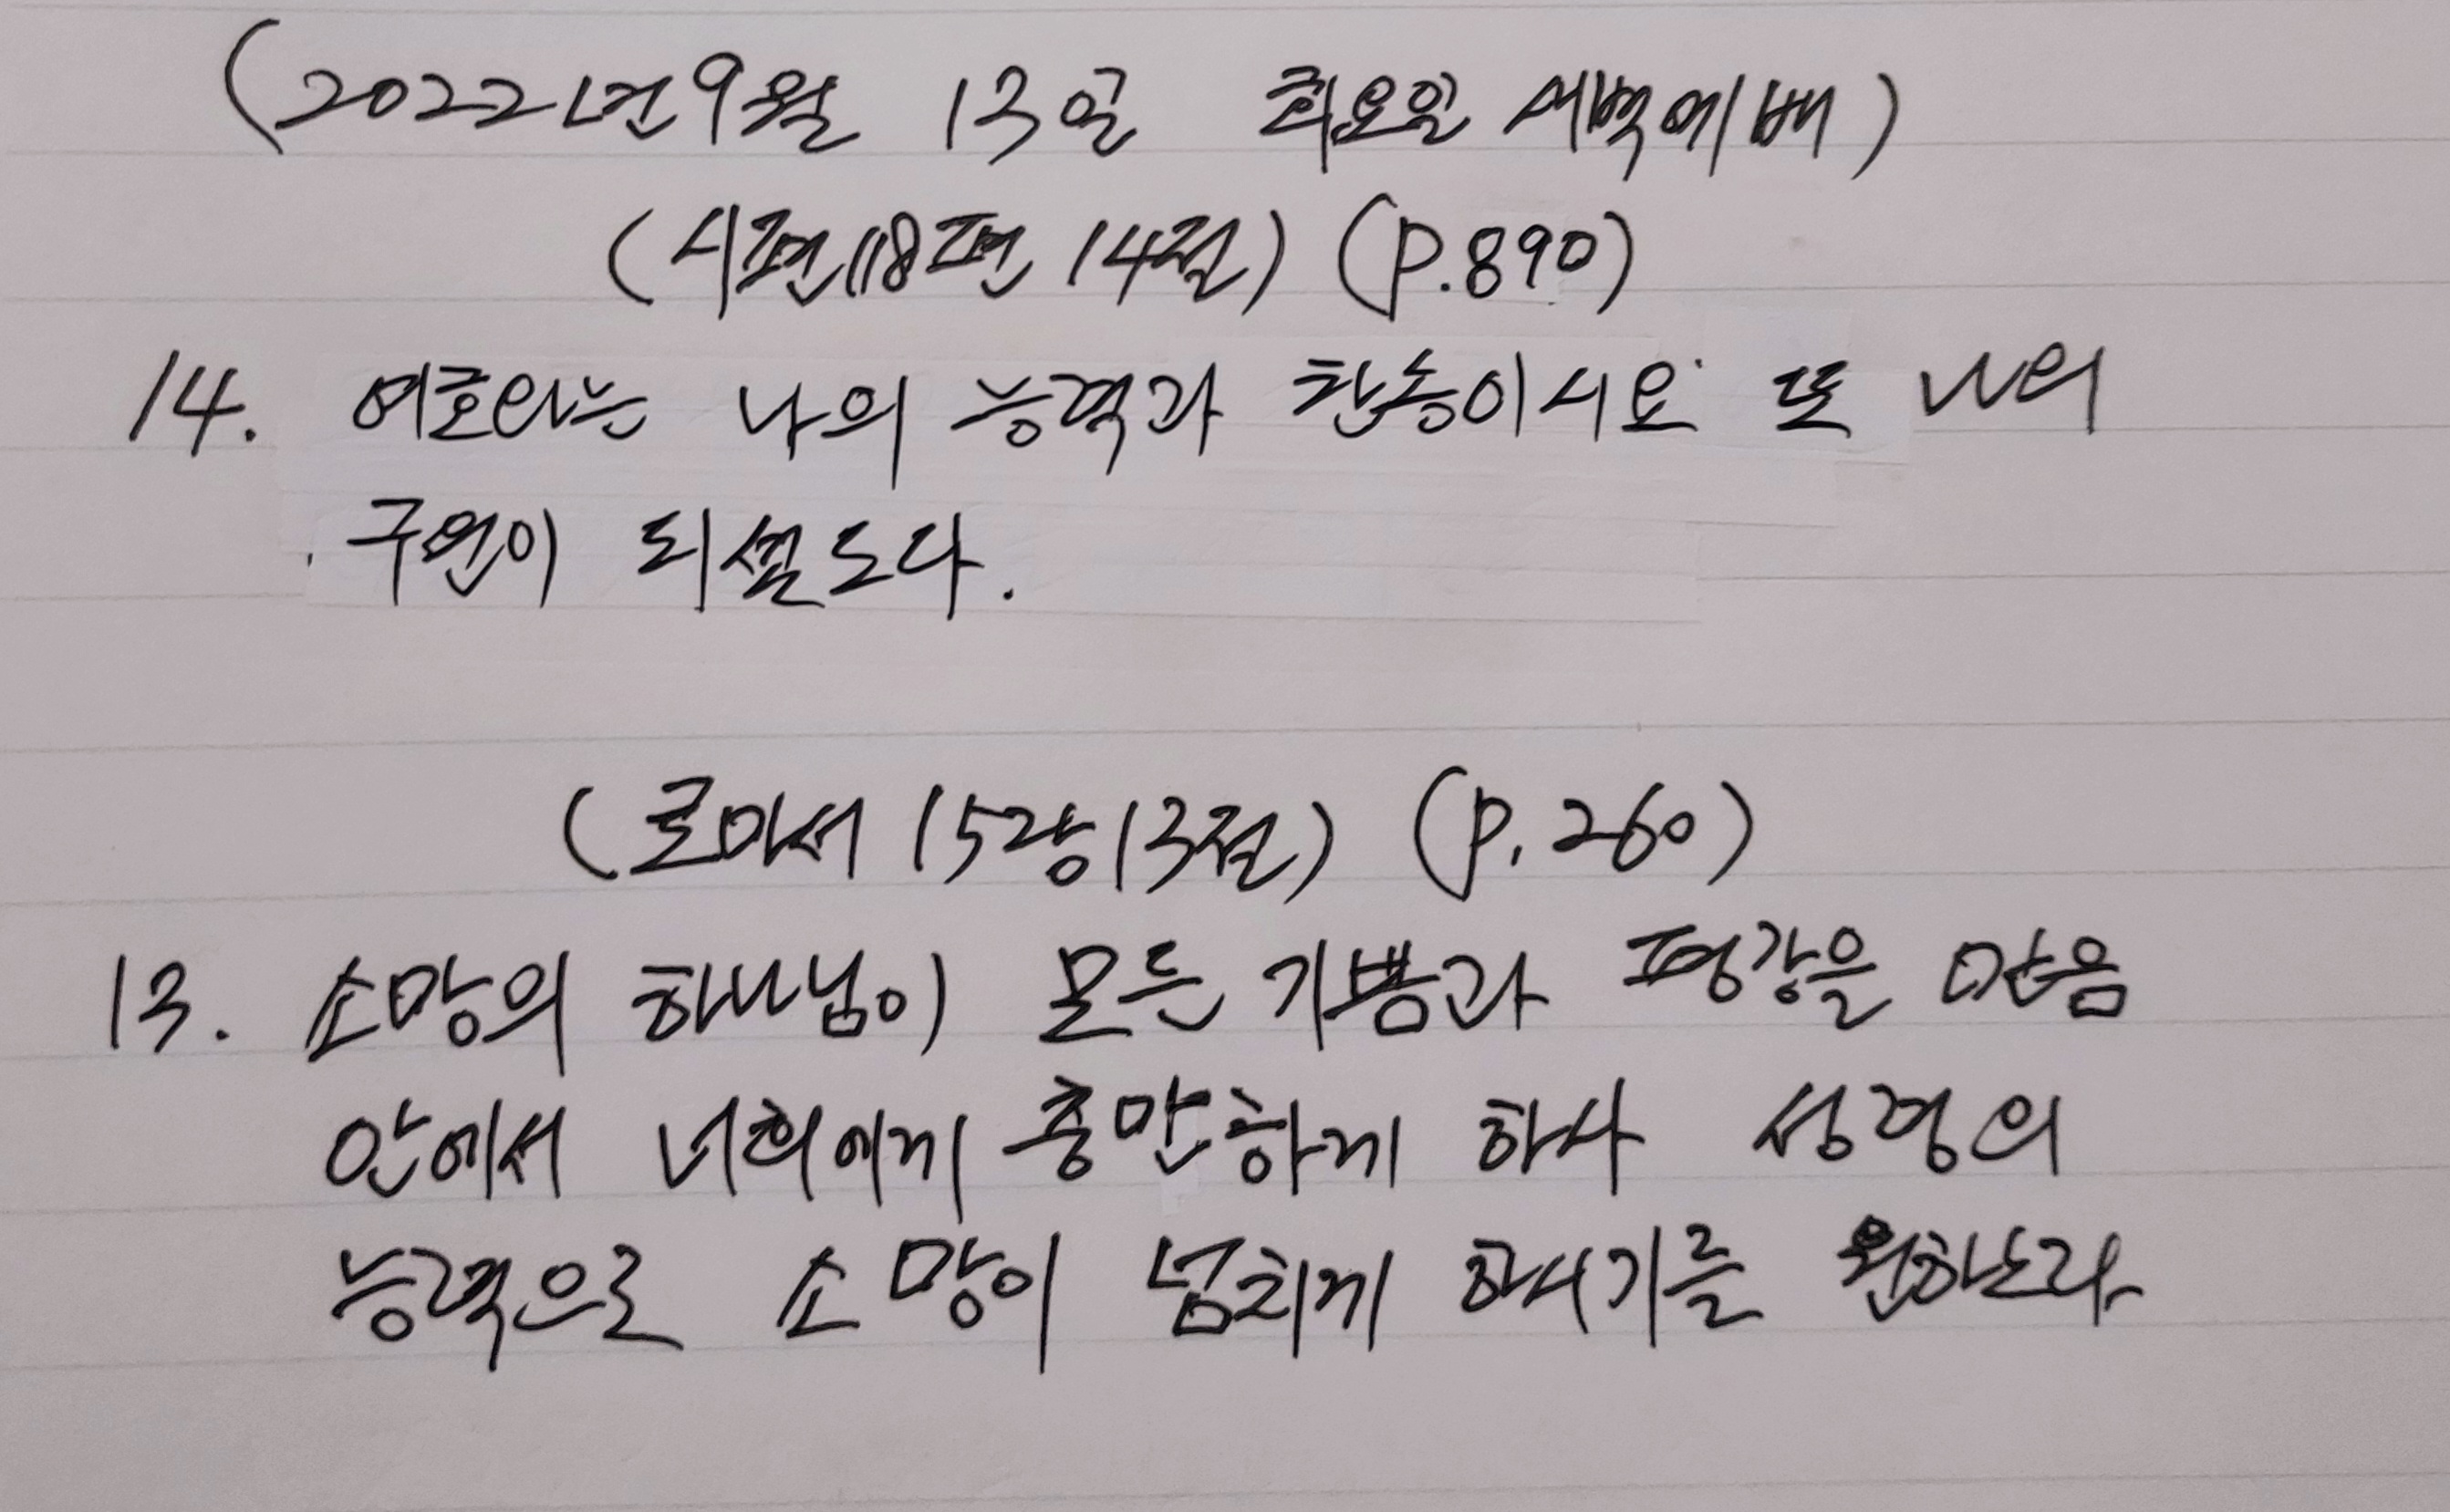 (2022년 9월 13일 화요일 새벽예배)
(시편118편 14절) (P.890)
14. 여호와는 나의 능력과 찬송이시요 또 나의
구원이 되셨도다.
(로마서 15장13절) (P.260)
13. 소망의 하나님이 모든 기쁨과 평강을 믿음
안에서 너희에게 충만하게 하사 성령의
능력으로 소망이 넘치게 하시기를 원하노라